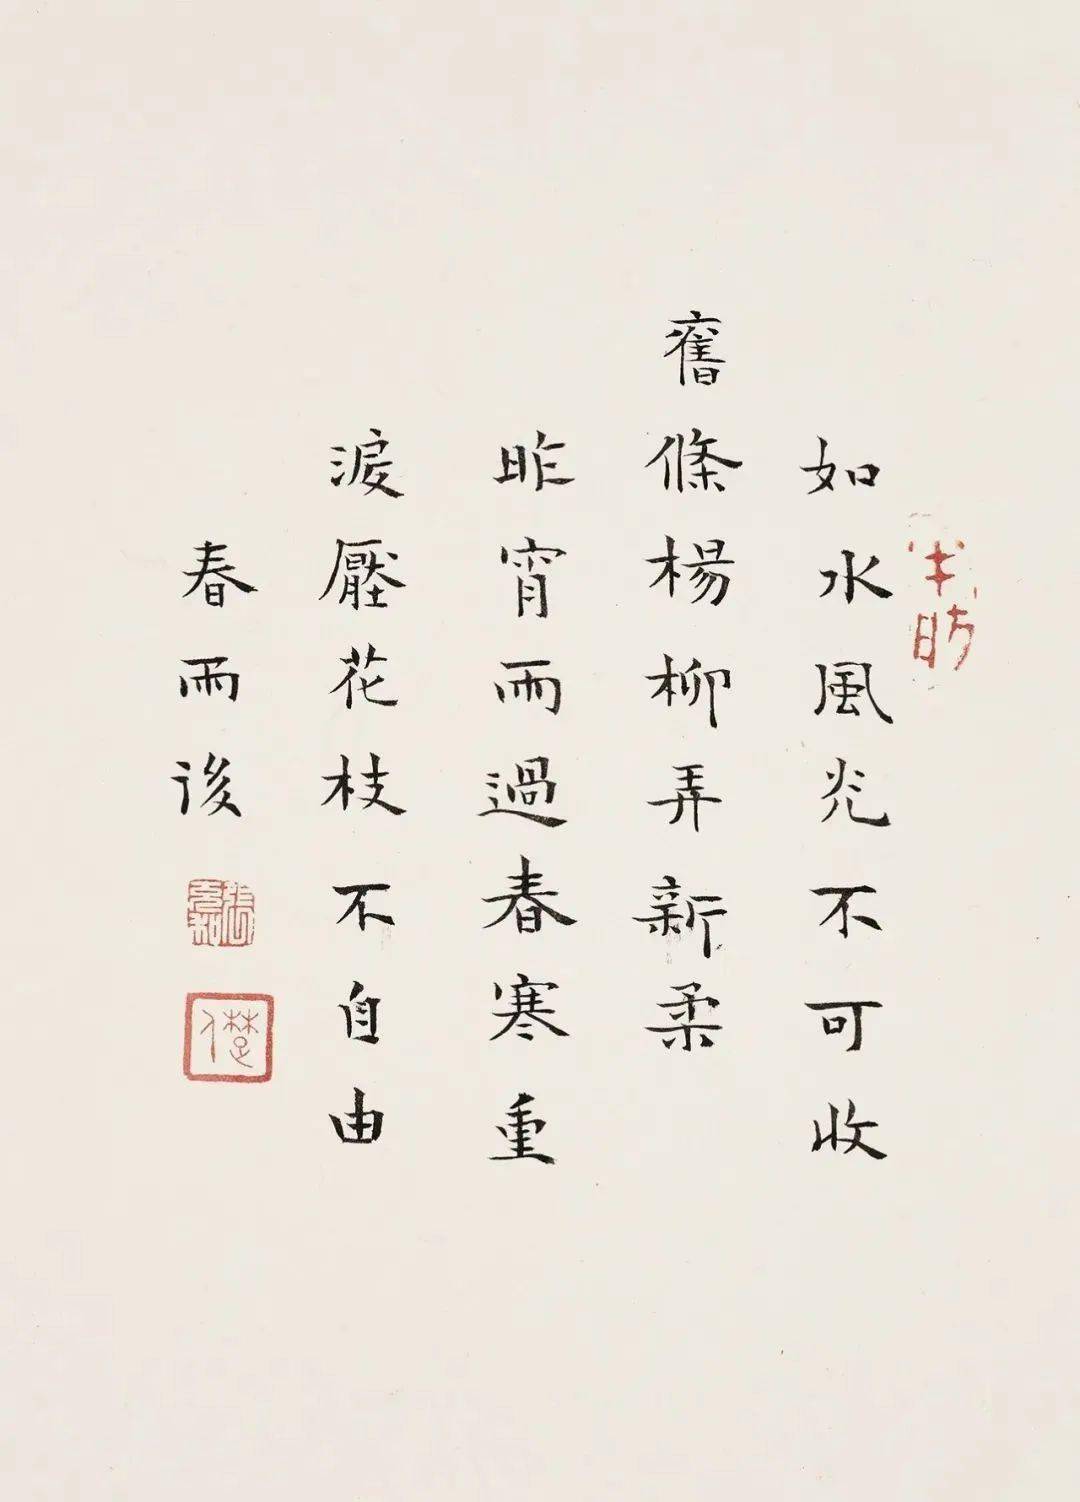 如水風光不可收
舊條楊柳弄新柔
昨宵雨過春寒重
淚壓花枝不自由
春雨後